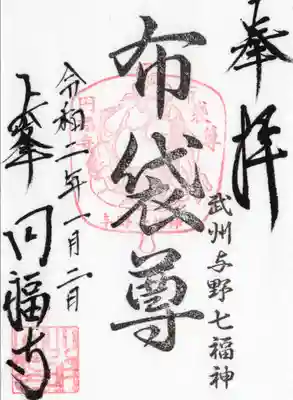 奉拝
武州与野七福神
布袋尊
令和二年一月二日
上峯 円福寺